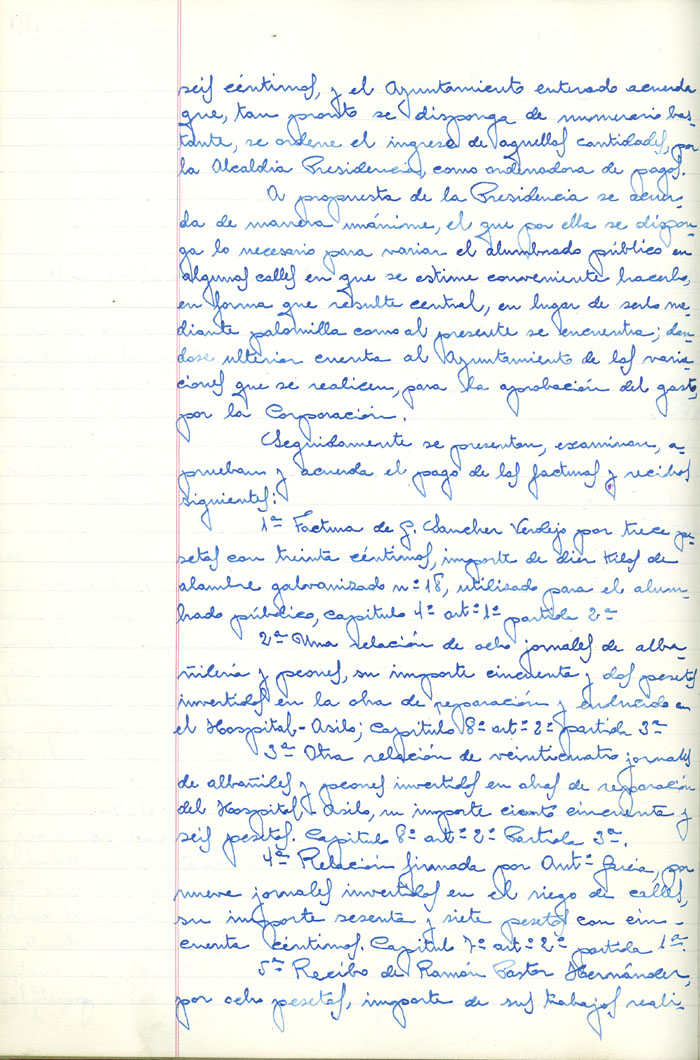 seis céntimos, y el Ayuntamiento enterado acuerda
que, tan pronto se disponga de numerario bas-
tante, se ordene el ingreso de aquellas cantidades, por
la Alcaldía Presidencia, como ordenadora de pagos.
A propuesta de la Presidencia se acuer-
da de manera unánime, el que por ella se dispon-
ga lo necesario para variar el alumbrado público en
algunas calles en que se estime conveniente hacerlo,
en forma que resulte central, en lugar de serlo me-
diante palomilla como al presente se encuentra; dan-
dose ulterior cuenta al Ayuntamiento de las varia-
ciones que se realicen, para la aprobación del gasto,
por la Corporación.
Seguidamente se presentan, examinan, a-
prueban y acuerda el pago de las facturas y recibos
siguientes:
1ª Factura de G. Sanchez Verdejo por trece pe-
setas con treinta céntimos, importe de diez kilos de
alambre galvanizado nº 18, utilisado para el alum-
brado público, capitulo 4º artº 1º partida 2ª
2ª Una relación de ocho jornales de alba-
ñilería y peones, su importe cincuenta y dos pesetas
invertidos en la obra de reparación y enlucido en
el Hospital-Asilo; Capitulo 8º artº 2º partida 3ª
3ª Otra relación de veinticuatro jornales
de albañiles y peones invertidos en obras de reparación
del Hospital-Asilo, su importe ciento cincuenta y
seis pesetas. Capitulo 8º artº 2º Partida 3ª.
4ª Relación firmada por Antº García, por
nueve jornales invertidos en el riego de calles,
su importe sesenta y siete pesetas con cin-
cuenta céntimos. Capitulo 7º artº 2º partida 1ª.
5ª Recibo de Ramón Pastor Hernández,
por ocho pesetas, importe de sus trabajos reali-